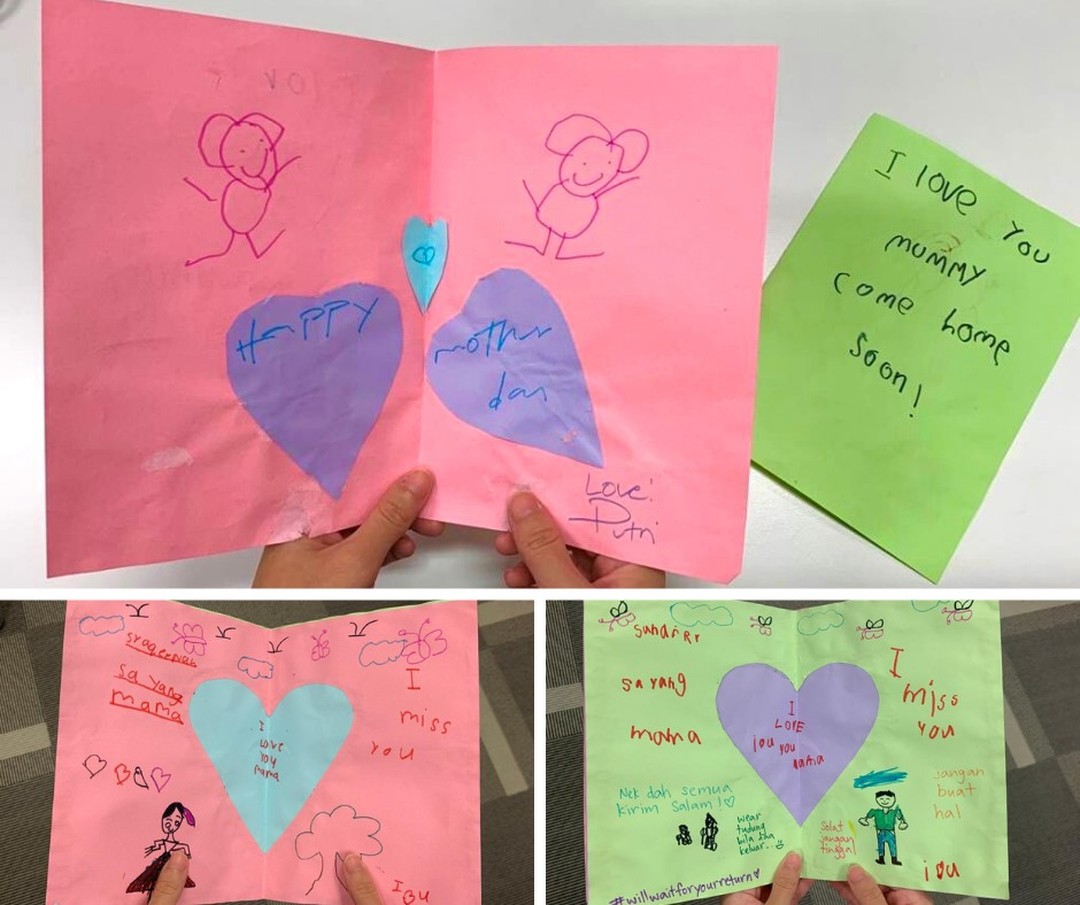 Happy
mother
day
Love:
Putri
I love you
mummy
come home
soon!
sayang
mama
I
miss
you
I
Love
you
mama
IBU
sayang
mama
I
LOVE
you
mama
I
miss
you
Nek dah semua
kirim salam!
wear
tudung
bila dah
keluar..
Solat
jangan
tinggal
jangan
buat
hal
ibu
#willwaitforyourreturn